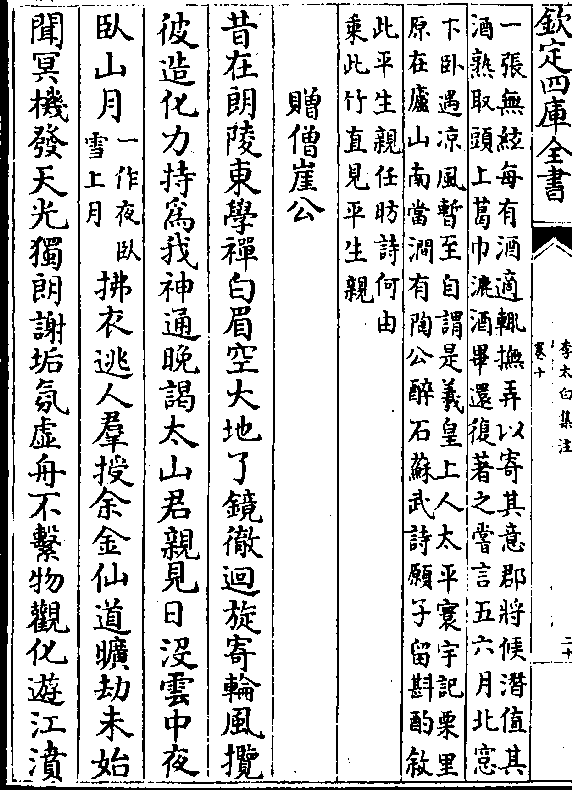 欽定四庫全書
李太白集注
卷十
二十
一張無絃每有酒適輒撫弄以寄其意郡將候潛值其
酒熟取頭上葛巾漉酒畢還復著之嘗言五六月北窓
下卧遇凉風暫至自謂是羲皇上人太平寰宇記栗里
原在廬山南當澗有陶公醉石蘇武詩願子留斟酌敘
此平生親任昉詩何由
乗此竹直見平生親
贈僧崖公
昔在朗陵東學禪白眉空大地了鏡徹迴旋寄輪風攬
彼造化力持為我神通晚謁太山君親見日没雲中夜
卧山月一作夜卧
雪上月拂衣逃人羣授余金仙道曠劫未始
聞冥機發天光獨朗謝垢氛虛舟不繫物觀化遊江濆